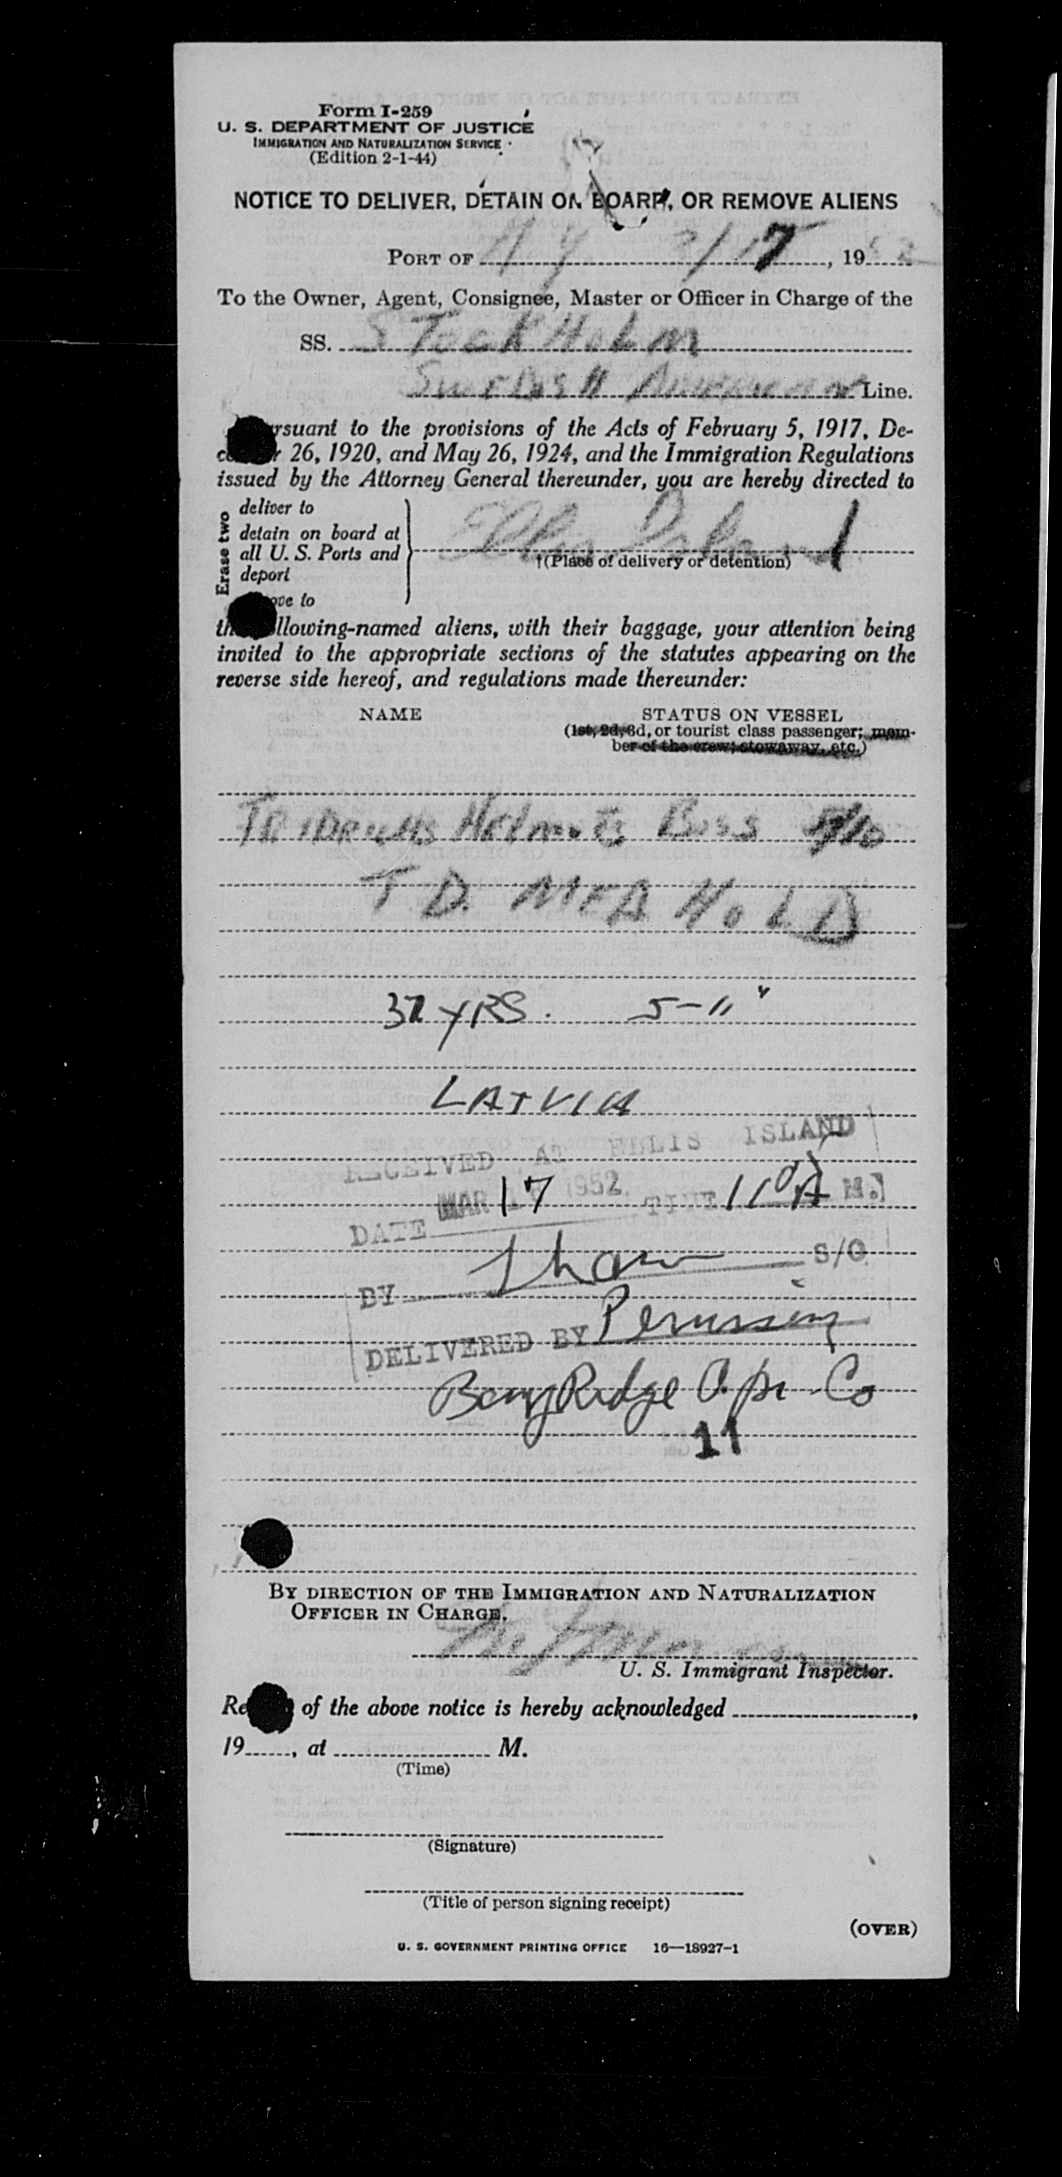 Form I-259
U. S. DEPARTMENT OF JUSTICE
IMMIGRATION AND NATURALIZATION SERVICE
(Edition 2-1-44)
NOTICE TO DELIVER, DETAIN ON BOARD, OR REMOVE ALIENS
PORT OF N Y 3/17, 1952
To the Owner, Agent, Consignee, Master or Officer in Charge of the
SS. STOCKHOLM
SWEDISH AMERICAN Line.
rsuant to the provisions of the Acts of February 5, 1917, De-
r 26, 1920, and May 26, 1924, and the Immigration Regulations
issued by the Attorney General thereunder, you are hereby directed to
Erase two
deliver to
detain on board at
all U. S. Ports and
deport
ove to
Ellis Island
†(Place of delivery or detention)
th llowing-named aliens, with their baggage, your attention being
invited to the appropriate sections of the statutes appearing on the
reverse side hereof, and regulations made thereunder:
NAME STATUS ON VESSEL
(1st, 2d, 3d, or tourist class passenger; mem-
ber of the crew; stowaway, etc.)
5/10
T D. MED HOLD
37 YRS. 5-11"
LATVIA
RECEIVED AT ELLIS ISLAND
DATE MAR 17 1952 TIME 11 A M.
BY S/O
DELIVERED BY
Bay Ridge Opr. Co
11
BY DIRECTION OF THE IMMIGRATION AND NATURALIZATION
OFFICER IN CHARGE.
U. S. Immigrant Inspector.
Re of the above notice is hereby acknowledged ,
19 , at M.
(Time)
(Signature)
(Title of person signing receipt)
(OVER)
U. S. GOVERNMENT PRINTING OFFICE 16—18927-1